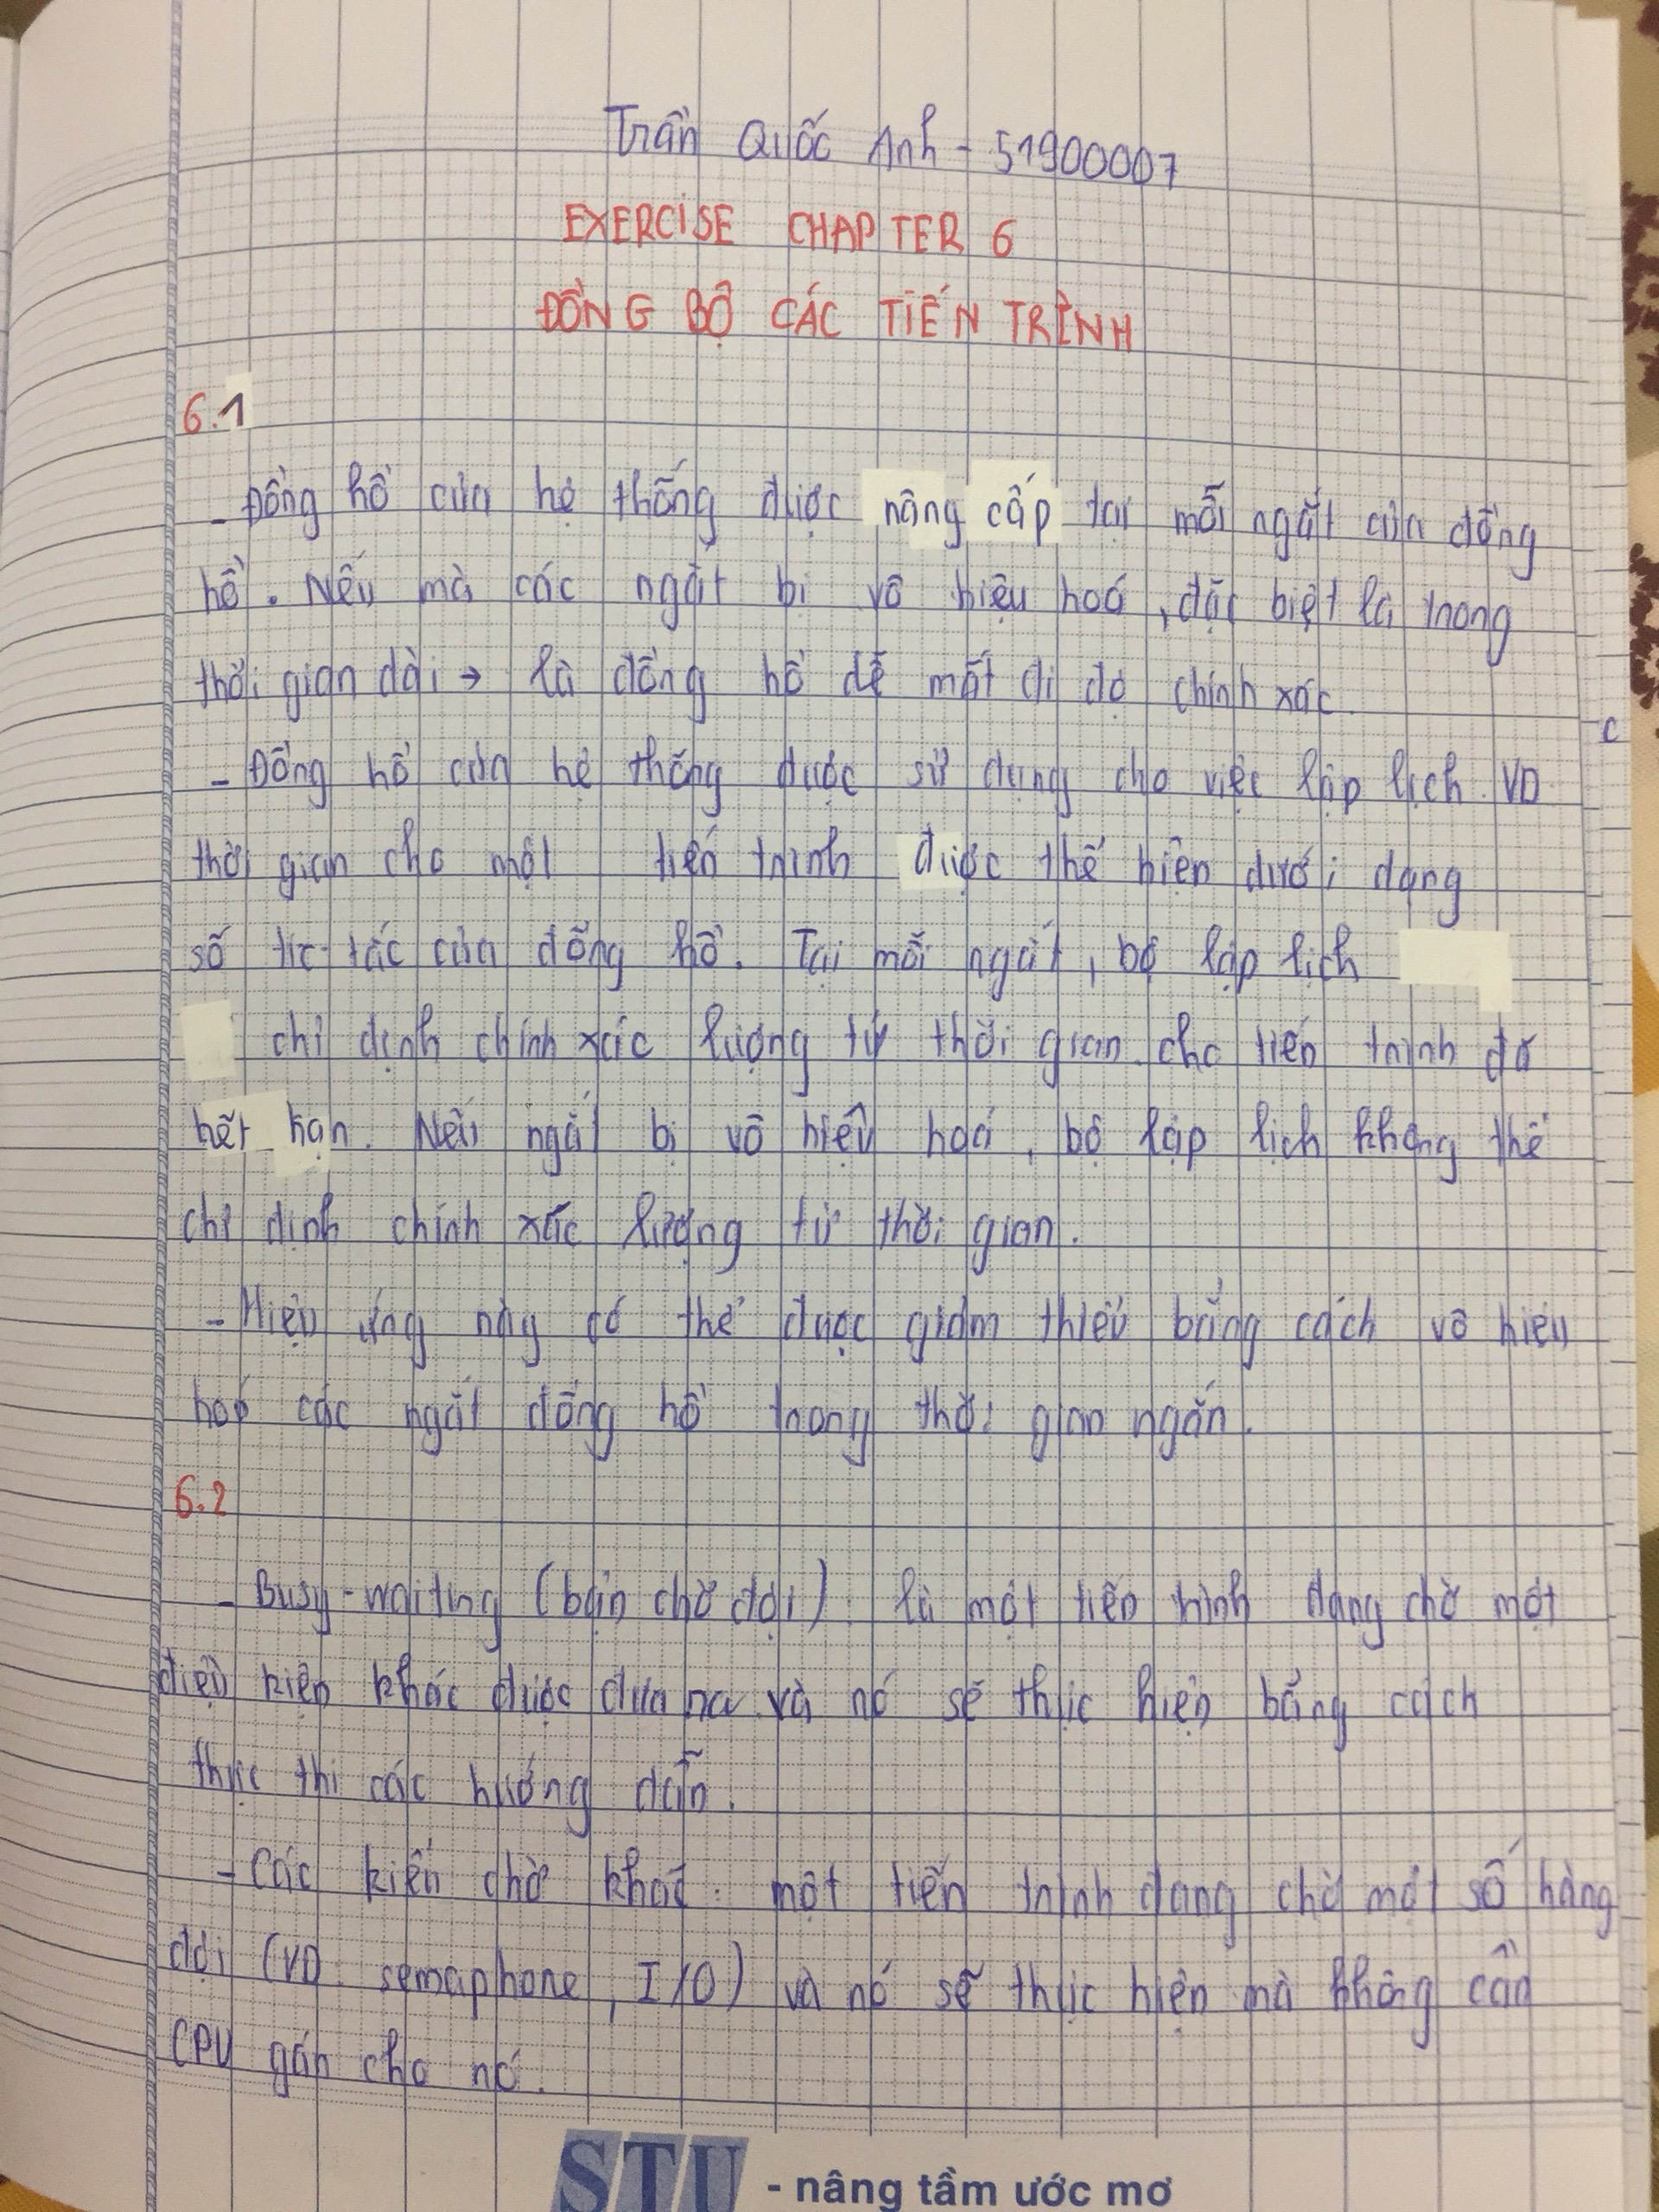 Trần Quốc Anh - 51900007
EXERCISE CHAPTER 6
ĐỒNG BỘ CÁC TIẾN TRÌNH
6.1
- Đồng hồ của hệ thống được nâng cấp tại mỗi ngắt của đồng
hồ. Nếu mà các ngắt bị vô hiệu hoá, đặc biệt là trong
thời gian dài → là đồng hồ dễ mất đi độ chính xác.
c
- Đồng hồ của hệ thống được sử dụng cho việc lập lịch. VD
thời gian cho một tiến trình được thể hiện dưới dạng
số tíc-tắc của đồng hồ. Tại mỗi ngắt, bộ lập lịch
chỉ định chính xác lượng tử thời gian cho tiến trình đó
hết hạn. Nếu ngắt bị vô hiệu hoá, bộ lập lịch không thể
chỉ định chính xác lượng tử thời gian.
- Hiệu ứng này có thể được giảm thiểu bằng cách vô hiệu
hoá các ngắt đồng hồ trong thời gian ngắn.
6.2
- Busy-waiting (bận chờ đợi) là một tiến trình đang chờ một
điều kiện khác được đưa ra và nó sẽ thực hiện bằng cách
thực thi các hướng dẫn.
- Các kiểu chờ khác: một tiến trình đang chờ một số hàng
đợi (VD: semaphone, I/O) và nó sẽ thực hiện mà không cần
CPU gán cho nó.
STU - nâng tầm ước mơ